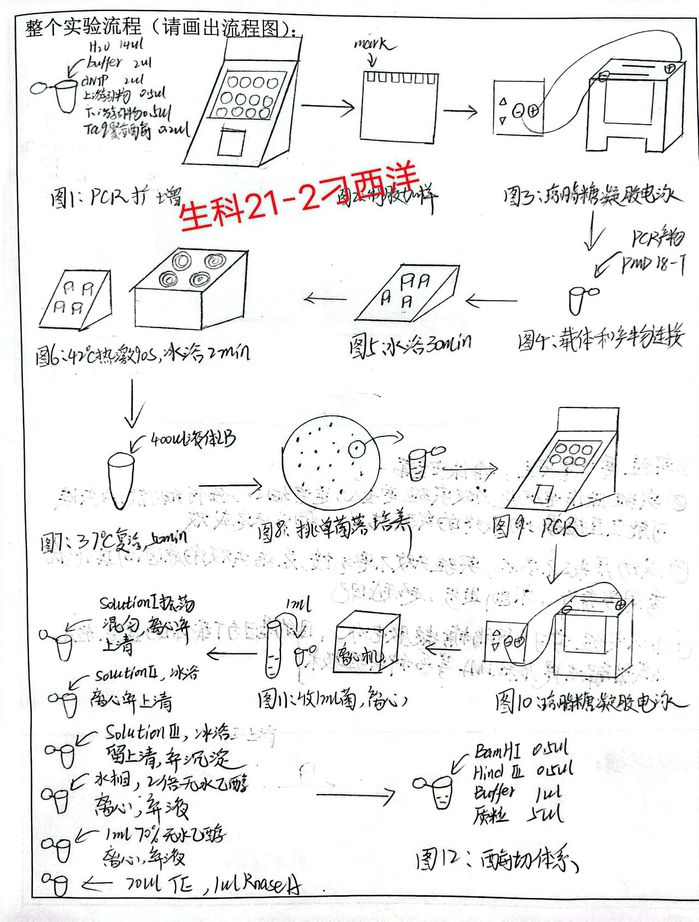 整个实验流程（请画出流程图）：
H₂O 14ul
buffer 2ul
dNTP 2ul
上游引物 0.5ul
下游引物 0.5ul
Taq聚合酶 0.2ul
mark
图1：PCR扩增
生科21-2刁西洋
图3：琼脂糖凝胶电泳
PCR产物
PMD 18-T
图4：载体和产物连接
图5：冰浴30min
图6：42℃热激90s，冰浴2min
400ul液体LB
图7：37℃复苏，
图8：挑单菌落培养
图9：PCR
图10：琼脂糖凝胶电泳
离心机
1ml
图11：收1ml菌，离心
Solution I 振荡
混匀，离心弃
上清
Solution II，冰浴
离心弃上清
Solution III，冰浴
留上清，弃沉淀
水相，2倍无水乙醇
离心，弃液
1ml 70%无水乙醇
离心，弃液
20ul TE，1ul RnaseA
BamHI 0.5ul
Hind III 0.5ul
Buffer 1ul
质粒 5ul
图12：酶切体系